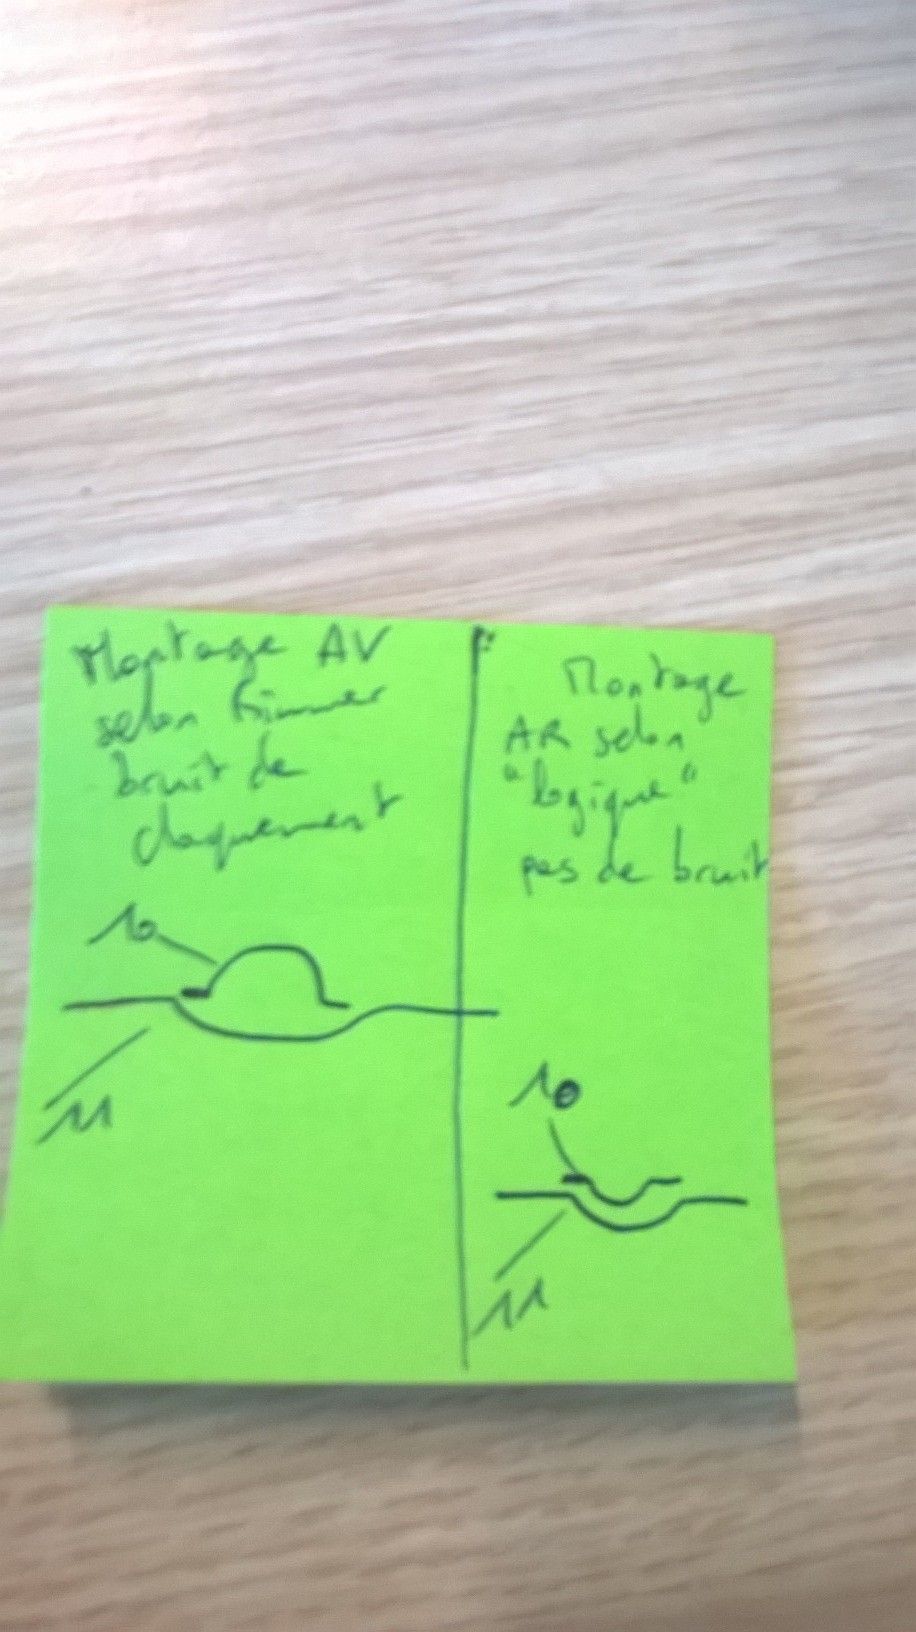 Montage AV
selon Frimmer
bruit de
claquement
10
11
Montage
AR selon
"logique"
pas de bruit
10
11